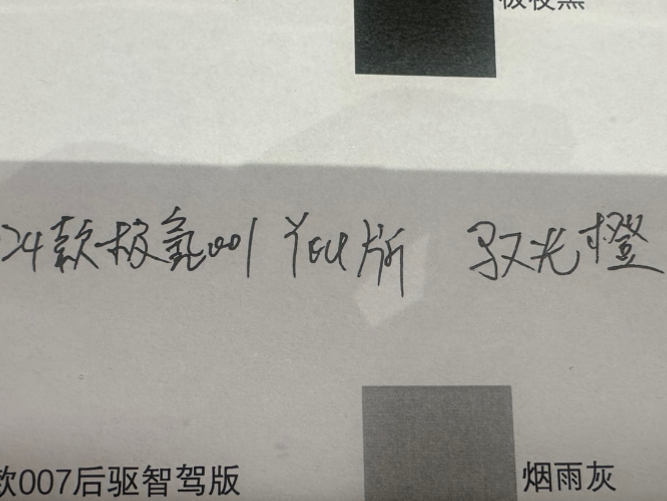 极夜黑
24款极氪001 YOU版 驭光橙
款007后驱智驾版 烟雨灰